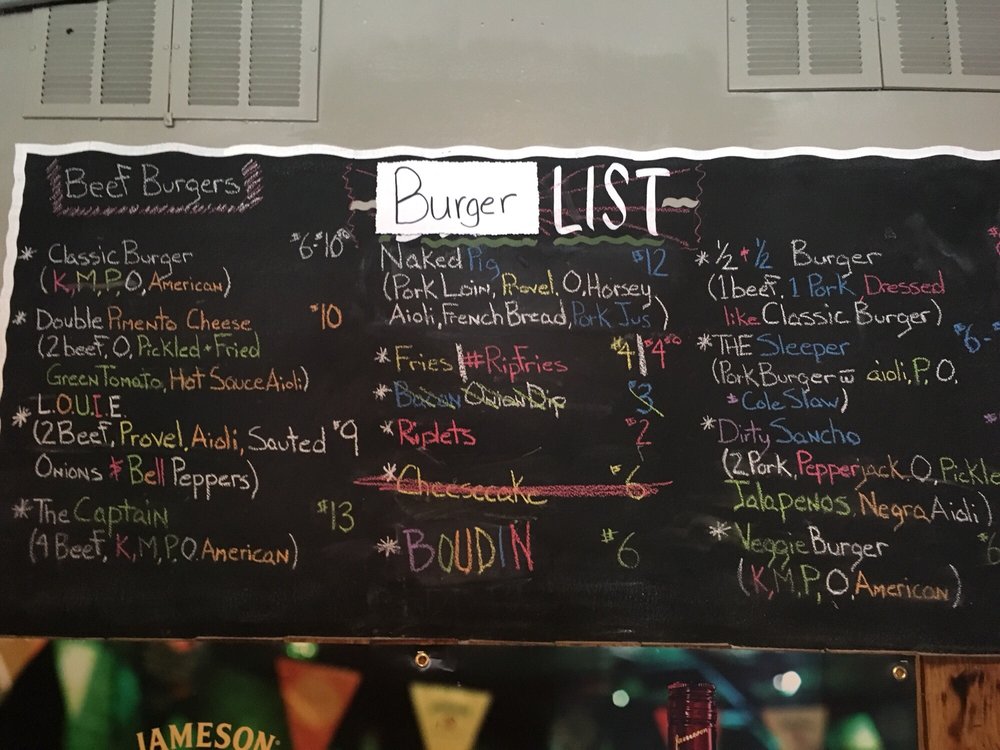 Beef Burgers
* Classic Burger $6-$10
(K, M, P, O, American)
* Double Pimento Cheese $10
(2 beef, O, Pickled + Fried
Green Tomato, Hot Sauce Aioli)
* L.O.U.I.E.
(2 Beef, Provel, Aioli, Sauted $9
Onions & Bell Peppers)
* The Captain $13
(4 Beef, K, M, P, O American)
Burger LIST
Naked Pig $12
(Pork Loin, Provel, O, Horsey
Aioli, French Bread, Pork Jus)
* Fries | #RipFries $4 | $4
* Bacon Onion Dip 3
* Riplets $2
* Cheesecake $6
* BOUDIN $6
* 1/2 + 1/2 Burger
(1 beef, 1 Pork Dressed
like Classic Burger)
* THE Sleeper $6-
(Pork Burger w̅ aioli, P, O,
& Cole Slaw)
* Dirty Sancho
(2 Pork, Pepperjack, O, Pickle
Jalapenos, Negra Aioli)
* Veggie Burger
(K, M, P, O, American)
JAMESON
Jameson